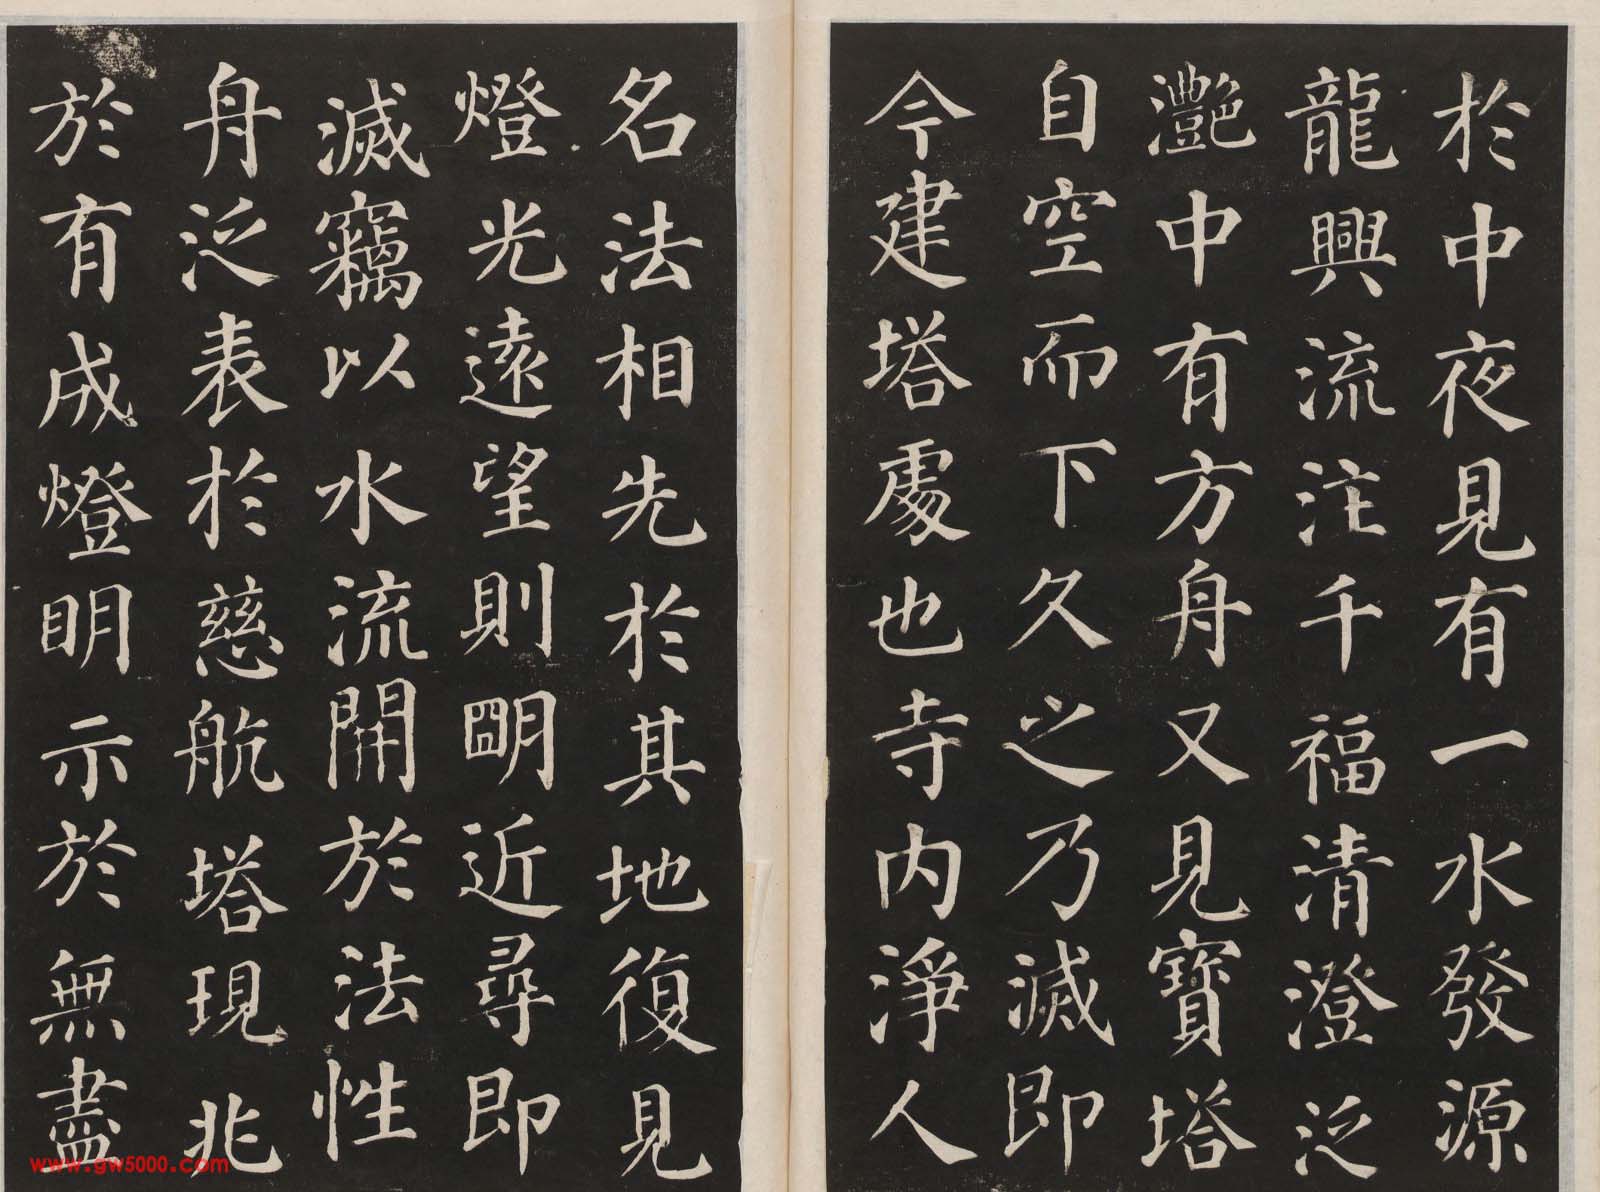 於中夜見有一水發源
龍興流注千福清澄泛
灔中有方舟又見寶塔
自空而下久之乃滅即
今建塔處也寺内淨人
名法相先於其地復見
燈光遠望則明近尋即
滅竊以水流開於法性
舟泛表於慈航塔現兆
於有成燈明示於無盡
www.gw5000.com